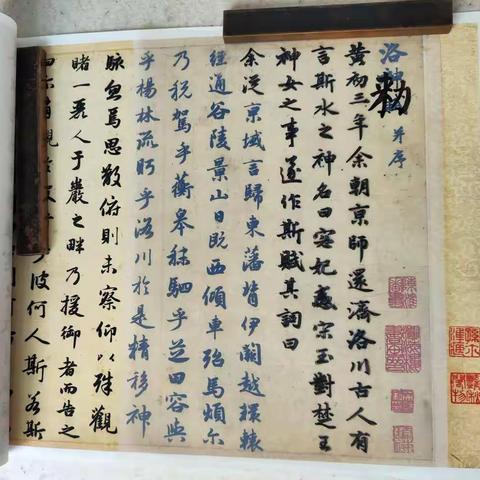 洛神 并序
黃初三年余朝京師還濟洛川古人有
言斯水之神名曰宓妃感宋玉對楚王
神女之事遂作斯賦其詞曰
余從京域言歸東藩背伊闕越轘轅
經通谷陵景山日既西傾車殆馬煩尔
乃稅駕乎蘅皋秣駟乎芝田容與
乎楊林流眄乎洛川於是精移神
駭忽焉思散俯則未察仰以殊觀
睹一麗人于巖之畔乃援御者而告之
曰尔有覿於 彼何人斯若斯